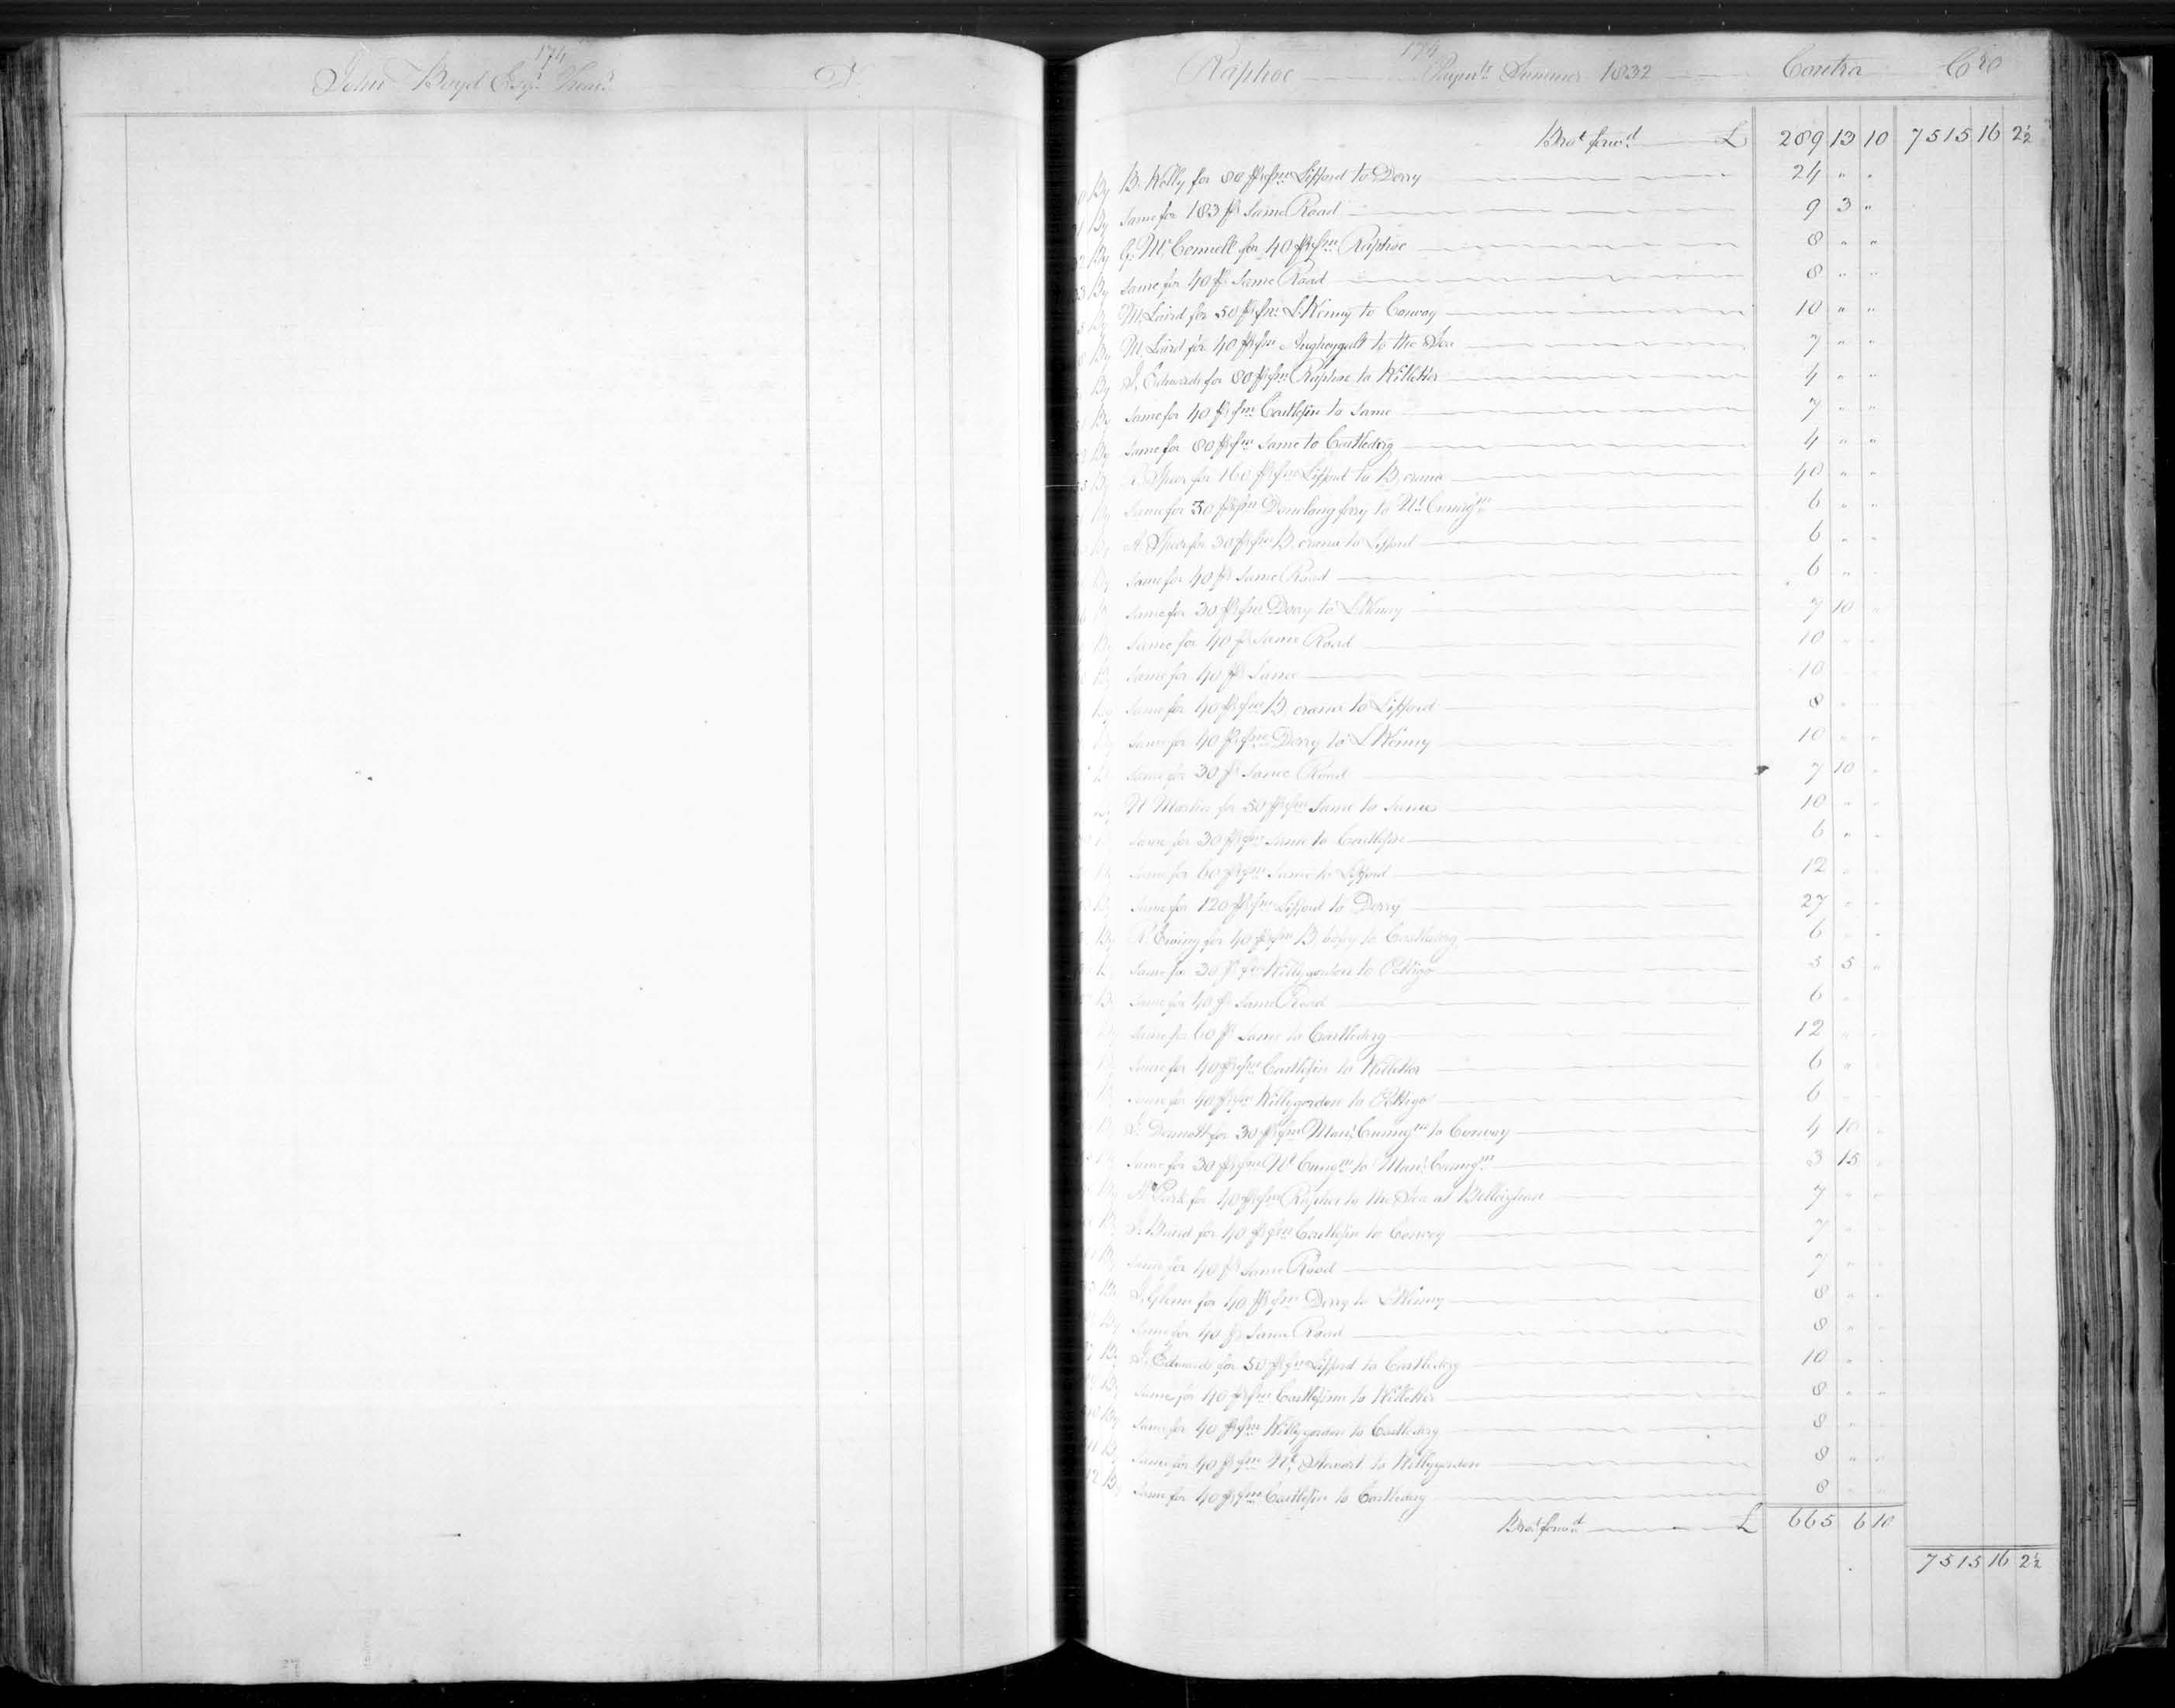 174
John Boyd Esqr. Treasr. Dr.
174
Raphoe Paymts. Summer 1832 Contra Cro
Brot. forwd. £ 289 13 10 7515 16 2½
By B. Kelly for 80 Ps fm Lifford to Derry 24 " "
By Same for 183 Ps Same Road 9 3 "
By G. McConnell for 40 Ps fm Raphoe 8 " "
By Same for 40 Ps Same Road 8 " "
By M. Laird for 50 Ps fm L.Kenny to Convoy 10 " "
By M. Laird for 40 Ps fm to the Sea 7 " "
By J. Edwards for 80 Ps fm Raphoe to Killetter 4 " "
By Same for 40 Ps fm Castlefin to Same 7 " "
By Same for 80 Ps fm Same to Castlederg 4 " "
By Speer for 160 Ps fm Lifford to B.crana 40 " "
By Same for 30 Ps fm ferry to Nt. Cunnigm 6 " "
By A. Speer for 30 Ps fm B.crana to Lifford 6 " "
By Same for 40 Ps Same Road 6 " "
Same for 30 Ps fm Derry to L.Kenny 7 10 "
By Same for 40 Ps Same Road 10 " "
By Same for 40 Ps Same 10 " "
By Same for 40 Ps fm B.crana to Lifford 8 " "
By Same for 40 Ps fm Derry to L.Kenny 10 " "
Same for 30 Ps Same Road 7 10 "
By Martin for 50 Ps fm Same to Same 10 " "
Same for 30 Ps fm Same to Castlefin 6 " "
By Same for 60 Ps fm Same to Lifford 12 " "
By Same for 120 Ps fm Lifford to Derry 27 " "
By R. Ewing for 40 Ps fm B.bofey to Castlederg 6 " "
Same for 30 Ps fm Killygordon to Pettigo 5 5 "
By Same for 40 Ps Same Road 6 " "
By Same for 60 Ps Same to Castlederg 12 " "
By Same for 40 Ps fm Castlefin to Killetter 6 " "
By Same for 40 Ps fm Killygordon to Pettigo 6 " "
By J. Dermott for 30 Ps fm Manr. Cunnigm to Convoy 4 10 "
By Same for 30 Ps fm Nt. Cungm to Manr. Cunnigm 3 15 "
By Park for 40 Ps fm Raphoe to the Sea at 7 " "
By J. Baird for 40 Ps fm Castlefin to Convoy 7 " "
By Same for 40 Ps Same Road 7 " "
By J. Glenn for 40 Ps fm Derry to L.Kenny 8 " "
By Same for 40 Ps Same Road 8 " "
By J. Edwards for 50 Ps fm Lifford to Castlederg 10 " "
By Same for 40 Ps fm Castlefinn to Killetter 8 " "
By Same for 40 Ps fm Killygordon to Castlederg 8 " "
By Same for 40 Ps fm Nt. Stewart to Killygordon 8 " "
By Same for 40 Ps fm Castlefin to Castlederg 8 " "
Brot. forwd. £ 665 6 10
7515 16 2½